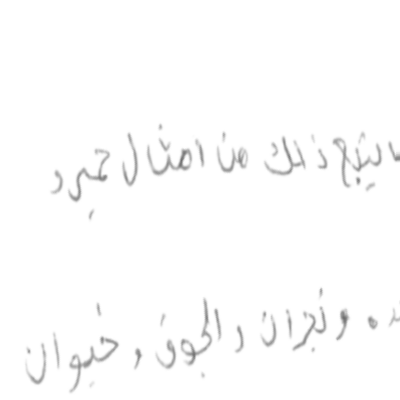 يتبع ذلك من امثال حمير و
ونجران والجوف وخيوان